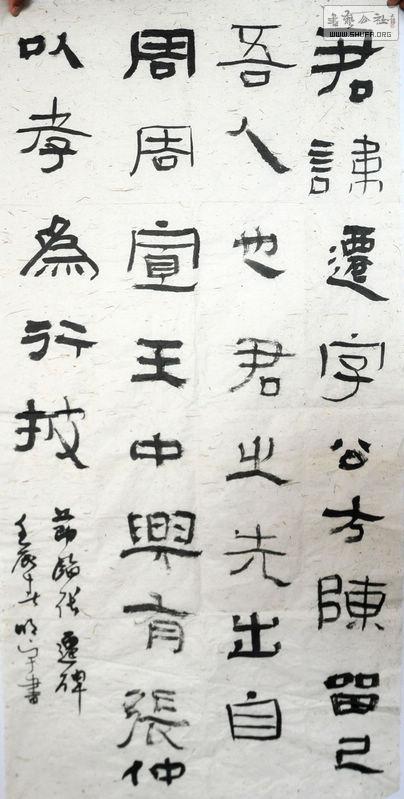 書藝公社
WWW.SHUFA.ORG
君諱遷字公方陳留己
吾人也君之先出自
周周宣王中興有張仲
以孝為行披
節臨張遷碑
壬辰
明宇書